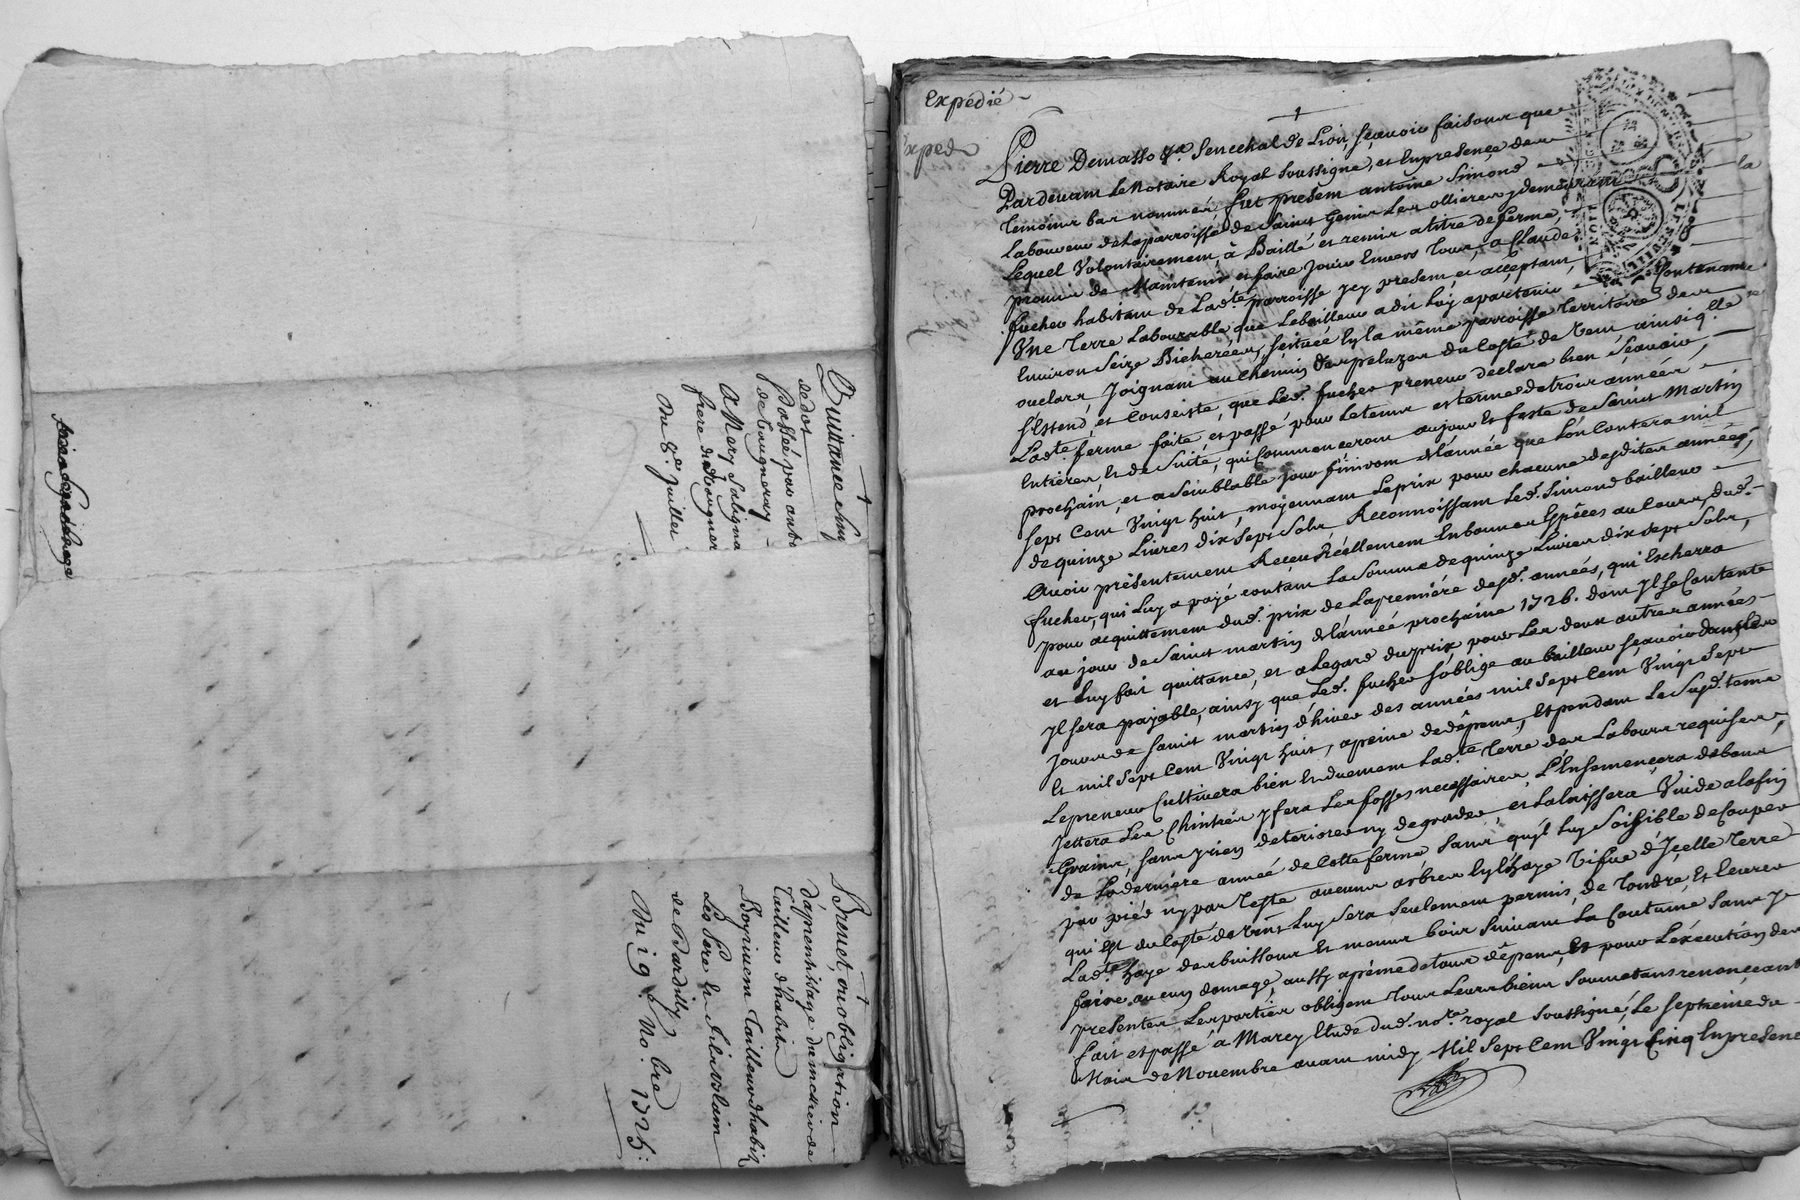 Quittance
de dot
Passé par
de Cougnerry
A Mery Saligna
frere
Du 8e. Juillet
Brevet, ou obligation
d'apprentissage du mettier de
Tailleur d'habits
Tailleur d'habit
Les Pere &
de Dardilly
Du 19e. No.bre 1725.
Expédié
Pierre Demasso &a. Senechal de Lion, sçavoir faisons que
Pardevant Le Notaire Royal soussigné, et En presence des
Temoins bas nommés, fut present antoine Simond
Laboureur de La parroisse de Saint Genis Les ollieres y demeurant
Lequel Volontairement, à Baillé et remis a titre de ferme,
promis de Maintenir et faire Jouir Envers Tous, a Claude
fucher habitant de Lad.te parroisse Jcy present, et acceptant, la
Une Terre Labourable, que Le bailleur a dit Luy apartenir Contenant
Environ Seize Bicherées, scituée En la même parroisse Territoire des
Joignant au chemin du Costé de Vent ainsi q.lle
s'Estend, et Consiste, que Led. fucher preneur déclare bien sçavoir,
Lad.te ferme faite, et passé pour Le tems et terme de trois années
Entieres & de Suitte, qui Commenceront au jour & feste de Saint Martin
prochain, et a Semblable jour finiront L'année que L'on Contera mil
Sept Cent Vingt huit, moyennant Le prix pour chacune desdites années,
de quinze Livres dix sept Sols, Reconnoissant Led. Simond bailleur
Avoir présentement Receu Réellement En bonnes Espêces au Cours, dud.
fucher, qui Luy a payé contant La Somme de quinze Livres dix sept Sols,
pour acquittement dud. prix de La premiére desd. années, qui Escherra
au jour de Saint martin de L'année prochaine 1726. dont Jl se Contente
et Luy fait quittance, et a L'egard du prix pour Les deux autres années
Jl sera payable, ainsy que Led. fucher s'oblige au bailleur, sçavoir
jours de Saint martin d'hiver des années mil sept Cent Vingt Sept
& mil Sept Cent Vingt huit, a peine de dépens, Et pendant Le Susd. tems
Le preneur Cultivera bien & duement Lad.te Terre des Labours requis
Jettera Les Chintres y fera Les fosses necessaires L'Ensemencera de bons
Grains, sans y rien deteriorer ny degrader, et La laissera Vuide a la fin
de La derniere année de Cette ferme, sans qu'jl Luy Soit Loisible de Couper
par pied ny par Teste aucuns arbres d'Jcelle Terre
qui Est du Costé de Vent Luy Sera Seulement permis, de Tondre, Et Lever
Lad.te haye des buissons Et menus bois Suivant La Coutume Sans y
faire aucun domage, aussy a peine de tous dêpens, Et pour L'éxécution des
presentes Les parties obligent Tous Leurs biens Soumetant renonceant
fait et passé à Marcy Etude dud. not.re royal soussigné, Le Septieme du
Mois de Novembre avant midy Mil Sept Cent Vingt Cinq En presence